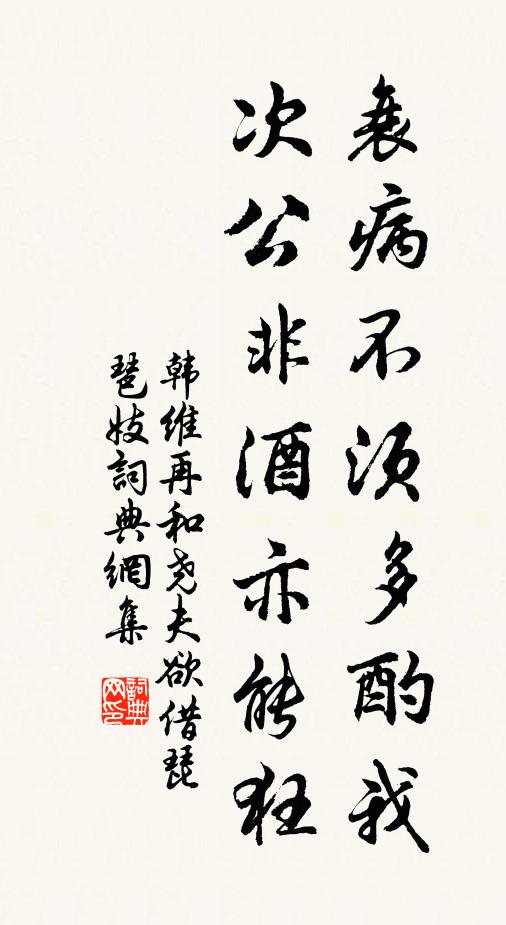 衰病不须多酌我
次公非酒亦能狂
韩维再和尧夫欲借琵
琶妓詞典網集
詞典
网印